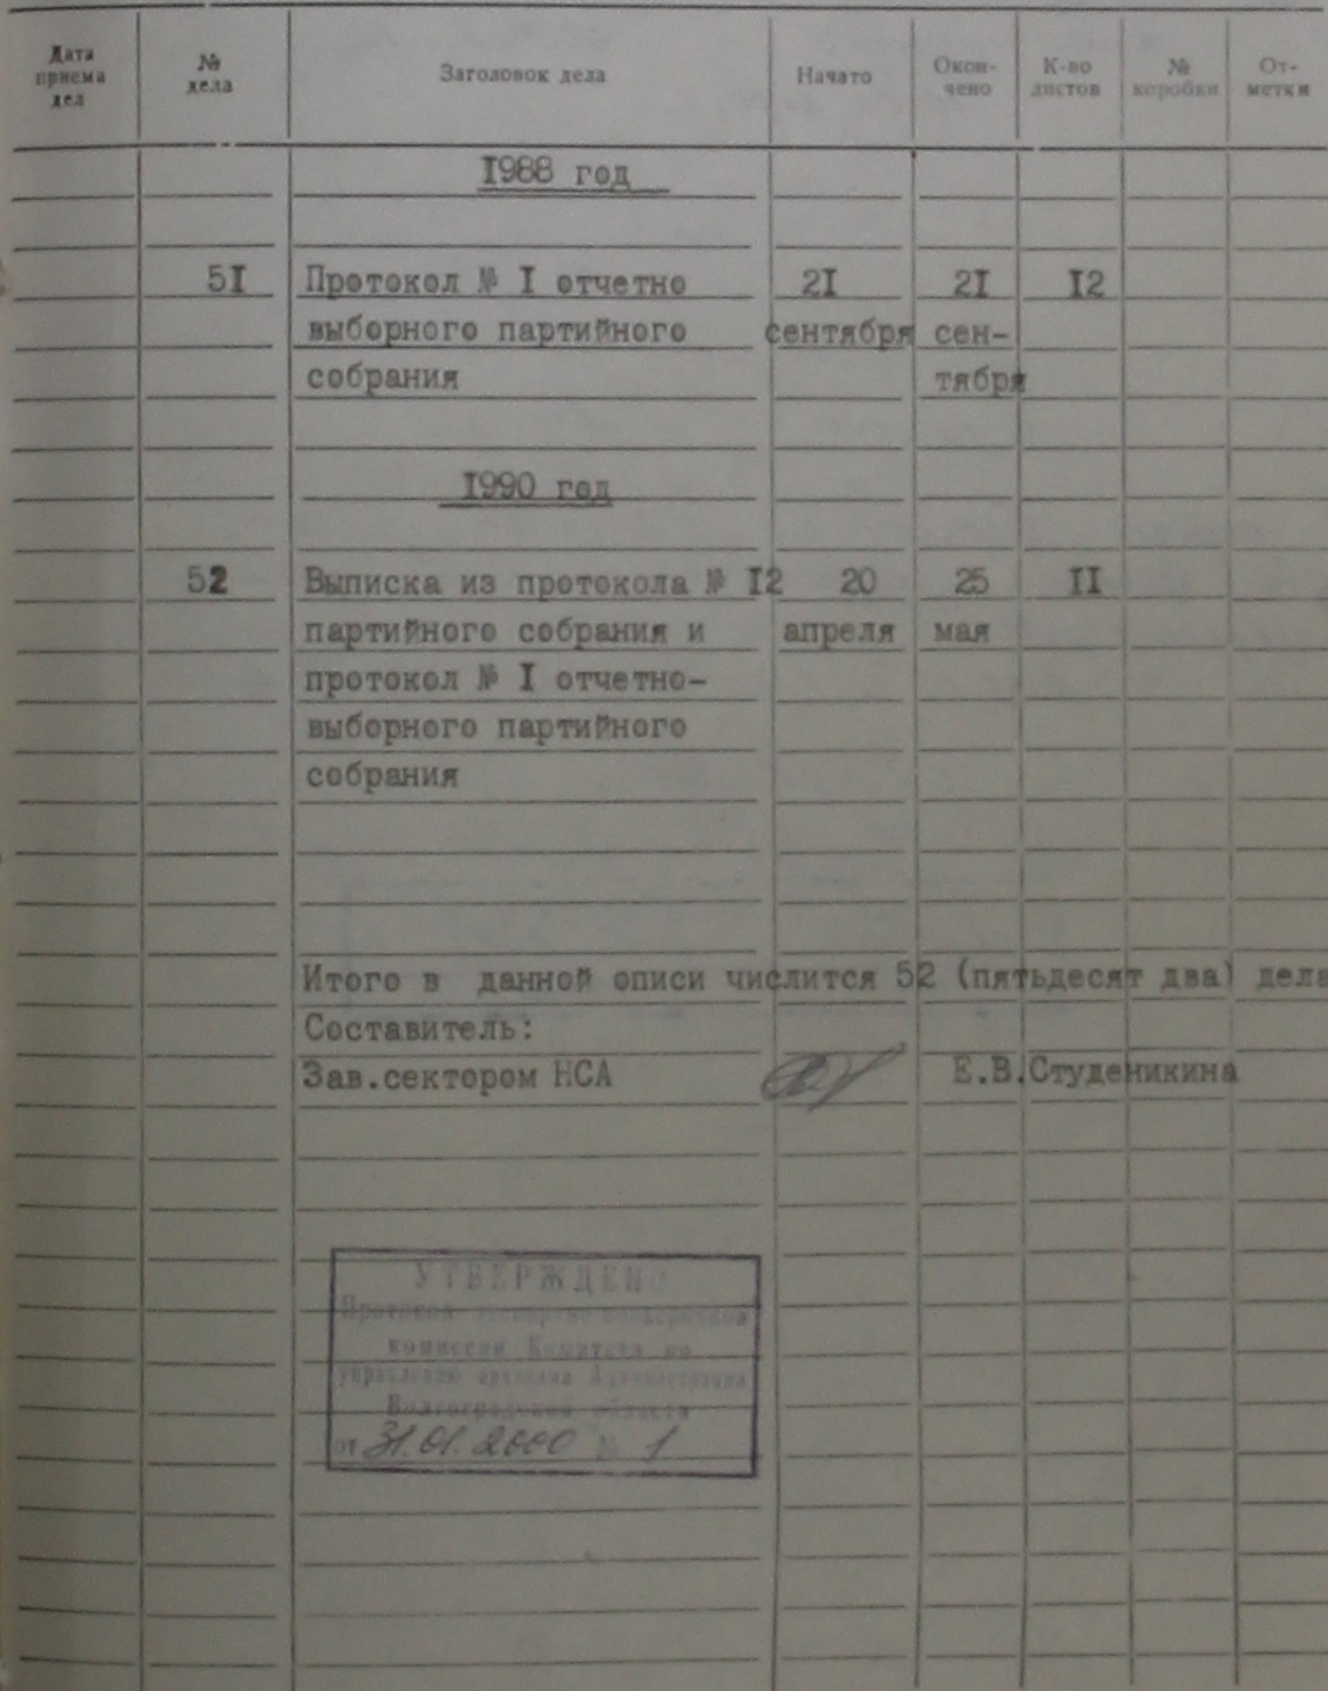 Дата приема дел № дела Заголовок дела Начато Окон- чено К-во листов № коробки От- метки
1988 год
51 Протокол № 1 отчетно 21 21 12
выборного партийного сентября сен-
собрания тября
1990 год
52 Выписка из протокола № 12 20 25 11
партийного собрания и апреля мая
протокол № 1 отчетно-
выборного партийного
собрания
Итого в данной описи числится 52 (пятьдесят два) дела
Составитель:
Зав.сектором НСА Е.В.Студеникина
УТВЕРЖДЕНО
Протокол экспертно-проверочной
комиссии Комитета по
управлению архивами Администрации
Волгоградской области
от 31.01.2000 № 1